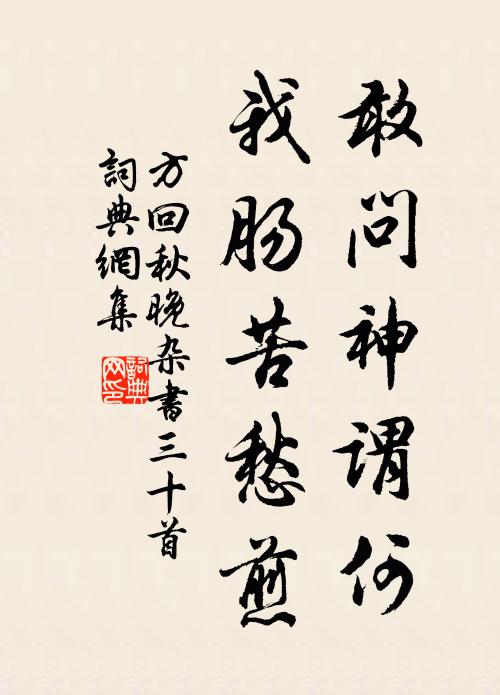 敢问神谓何
我肠苦愁煎
方回秋晚杂書三十首
詞典網集
詞典网印